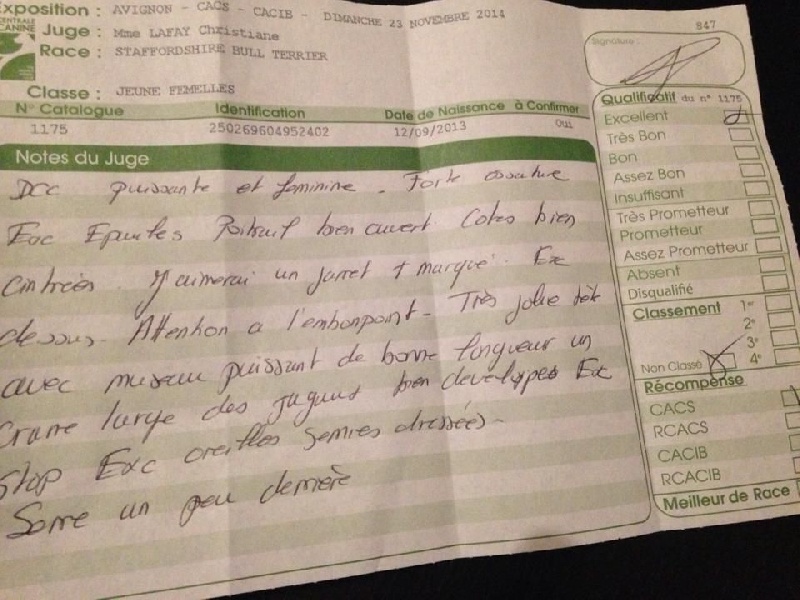 Exposition : AVIGNON - CACS - CACIB - DIMANCHE 23 NOVEMBRE 2014
CENTRALE
CANINE
Juge : Mme LAFAY Christiane
Race : STAFFORDSHIRE BULL TERRIER
Classe : JEUNE FEMELLES
N° Catalogue Identification Date de Naissance à Confirmer
1175 250269604952402 12/09/2013 Oui
Notes du Juge
puissante et feminine. Forte ossature
Exc Epaules Poitrail bien ouvert Cotes bien
cintrées. J'aimerai un jarret + marqué. Exc
dessus. Attention a l'embonpoint - Très jolie tête
avec museau puissant de bonne longueur un
Crane large des bien developpes Exc
Stop Exc oreilles Semies dressées -
Serre un peu derriere
847
Signature :
Qualificatif du n° 1175
Excellent
Très Bon
Bon
Assez Bon
Insuffisant
Très Prometteur
Prometteur
Assez Prometteur
Absent
Disqualifié
Classement 1er
2e
3e
Non Classé 4e
Récompense
CACS
RCACS
CACIB
RCACIB
Meilleur de Race